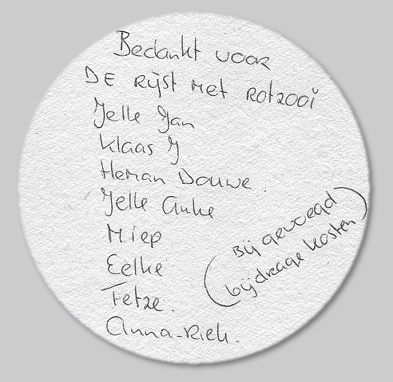 Bedankt voor
DE Rijst met rotzooi
Jelle Jan
Klaas J
Heman Douwe.
Jelle Anke
Miep
Eelke
Fetze.
Anna-Riek.
(Bij gevoegd
bijdrage kosten)